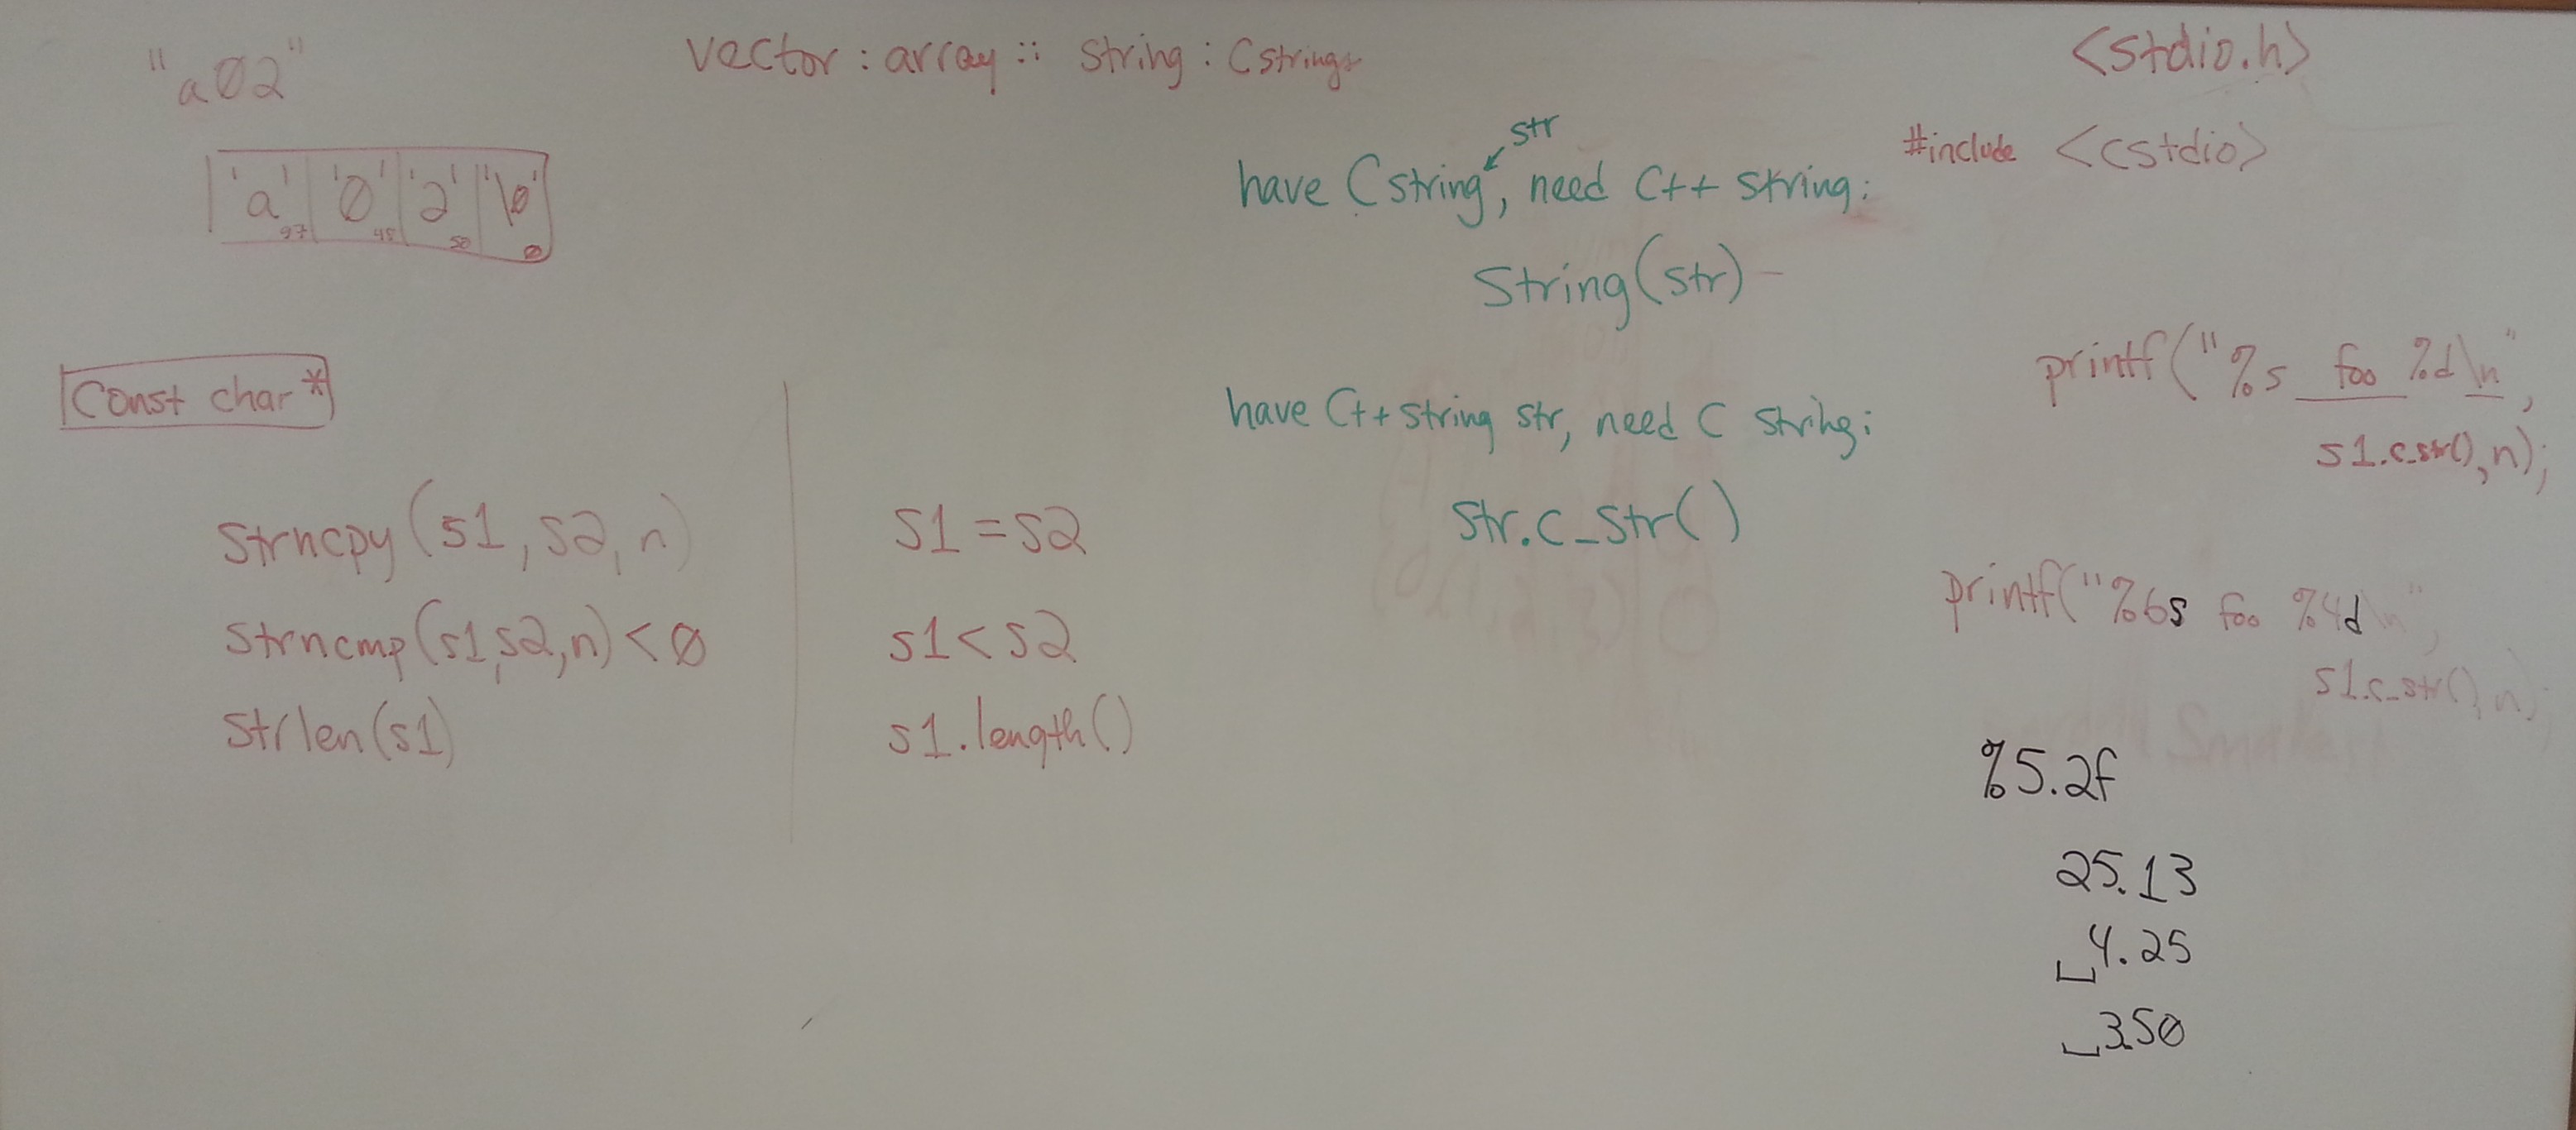 "a02"
'a' '0' '2' '\0'
97 48 50 0
const char*
strncpy(s1, s2, n)
strncmp(s1,s2,n) < 0
strlen(s1)
s1 = s2
s1 < s2
s1.length()
vector : array :: string : Cstrings
str
have C string, need C++ string:
string(str)
have C++ string str, need C string:
str.c_str()
<stdio.h>
#include <cstdio>
printf("%s foo %d\n",
s1.c_str(), n);
printf("%6s foo %4d\n",
s1.c_str(), n);
%5.2f
25.13
4.25
3.50